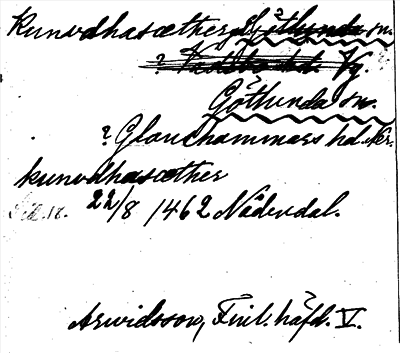 Kunudhasæther, Götlunda sn.
? Vadsbo hd. Vg.
Götlunda sn.
? Glanshammars hd. Ner.
kunudhasæther
22/8 1462 Nådendal.
Arwidsson, Finl. häfd. V.